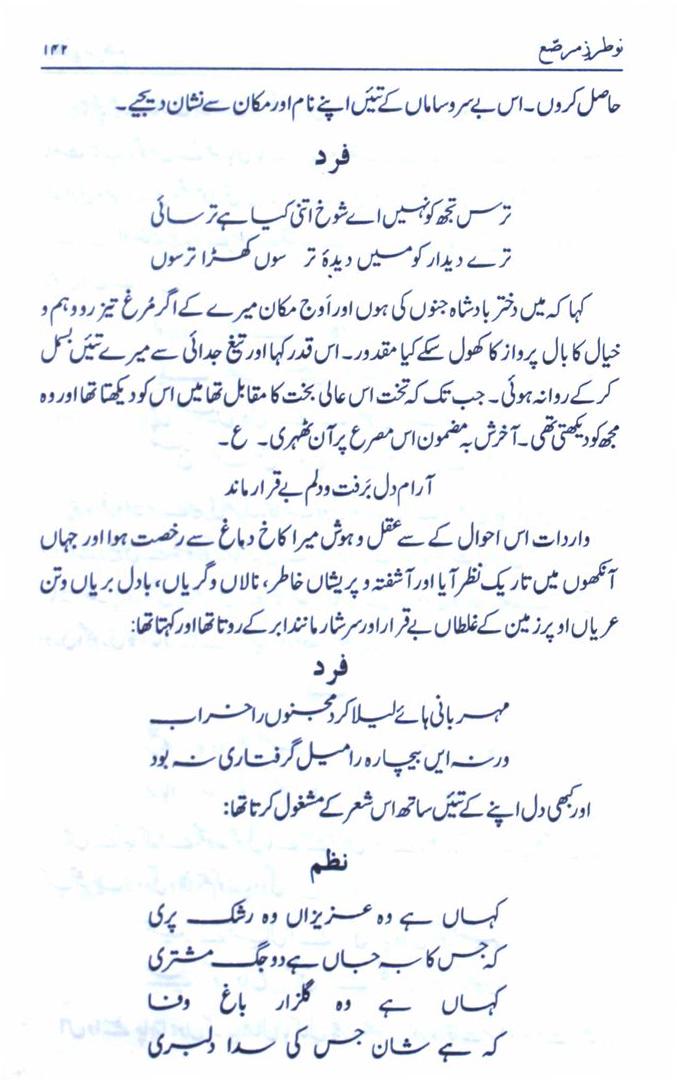 نو طرزِ مرصّع ۱۴۲
حاصل کروں۔ اس بے سروساماں کے تئیں اپنے نام اور مکان سے نشان دیجیے۔
فرد
ترس تجھ کو نہیں اے شوخ اتنی کیا ہے ترسائی
ترے دیدار کو میں دیدۂ تر سوں کھڑا ترسوں
کہا کہ میں دختر بادشاہ جنوں کی ہوں اور اَوج مکان میرے کے اگر مُرغ تیز رو وہم و
خیال کا بال پرواز کا کھول سکے کیا مقدور۔ اس قدر کہا اور تیغ جدائی سے میرے تئیں بسمل
کر کے روانہ ہوئی۔ جب تک کہ تخت اس عالی بخت کا مقابل تھا میں اس کو دیکھتا تھا اور وہ
مجھ کو دیکھتی تھی۔ آخرش بہ مضمون اس مصرع پر آن ٹھہری۔ ع۔
آرام دل بَرفت و دلم بے قرار ماند
واردات اس احوال کے سے عقل و ہوش میرا کاخ دماغ سے رخصت ہوا اور جہاں
آنکھوں میں تاریک نظر آیا اور آشفتہ و پریشاں خاطر، نالاں و گریاں، بادل بریاں وتن
عریاں اوپر زمین کے غلطاں بے قرار اور سرشار مانند ابر کے روتا تھا اور کہتا تھا:
فرد
مہربانی ہائے لیلا کرد مجنوں را خراب
ورنہ ایں بیچارہ را میل گرفتاری نہ بود
اور کبھی دل اپنے کے تئیں ساتھ اس شعر کے مشغول کرتا تھا:
نظم
کہاں ہے وہ عزیزاں وہ رشک پری
کہ جس کا بہ جاں ہے دو جگ مشتری
کہاں ہے وہ گلزار باغ وفا
کہ ہے شان جس کی سدا دلبری